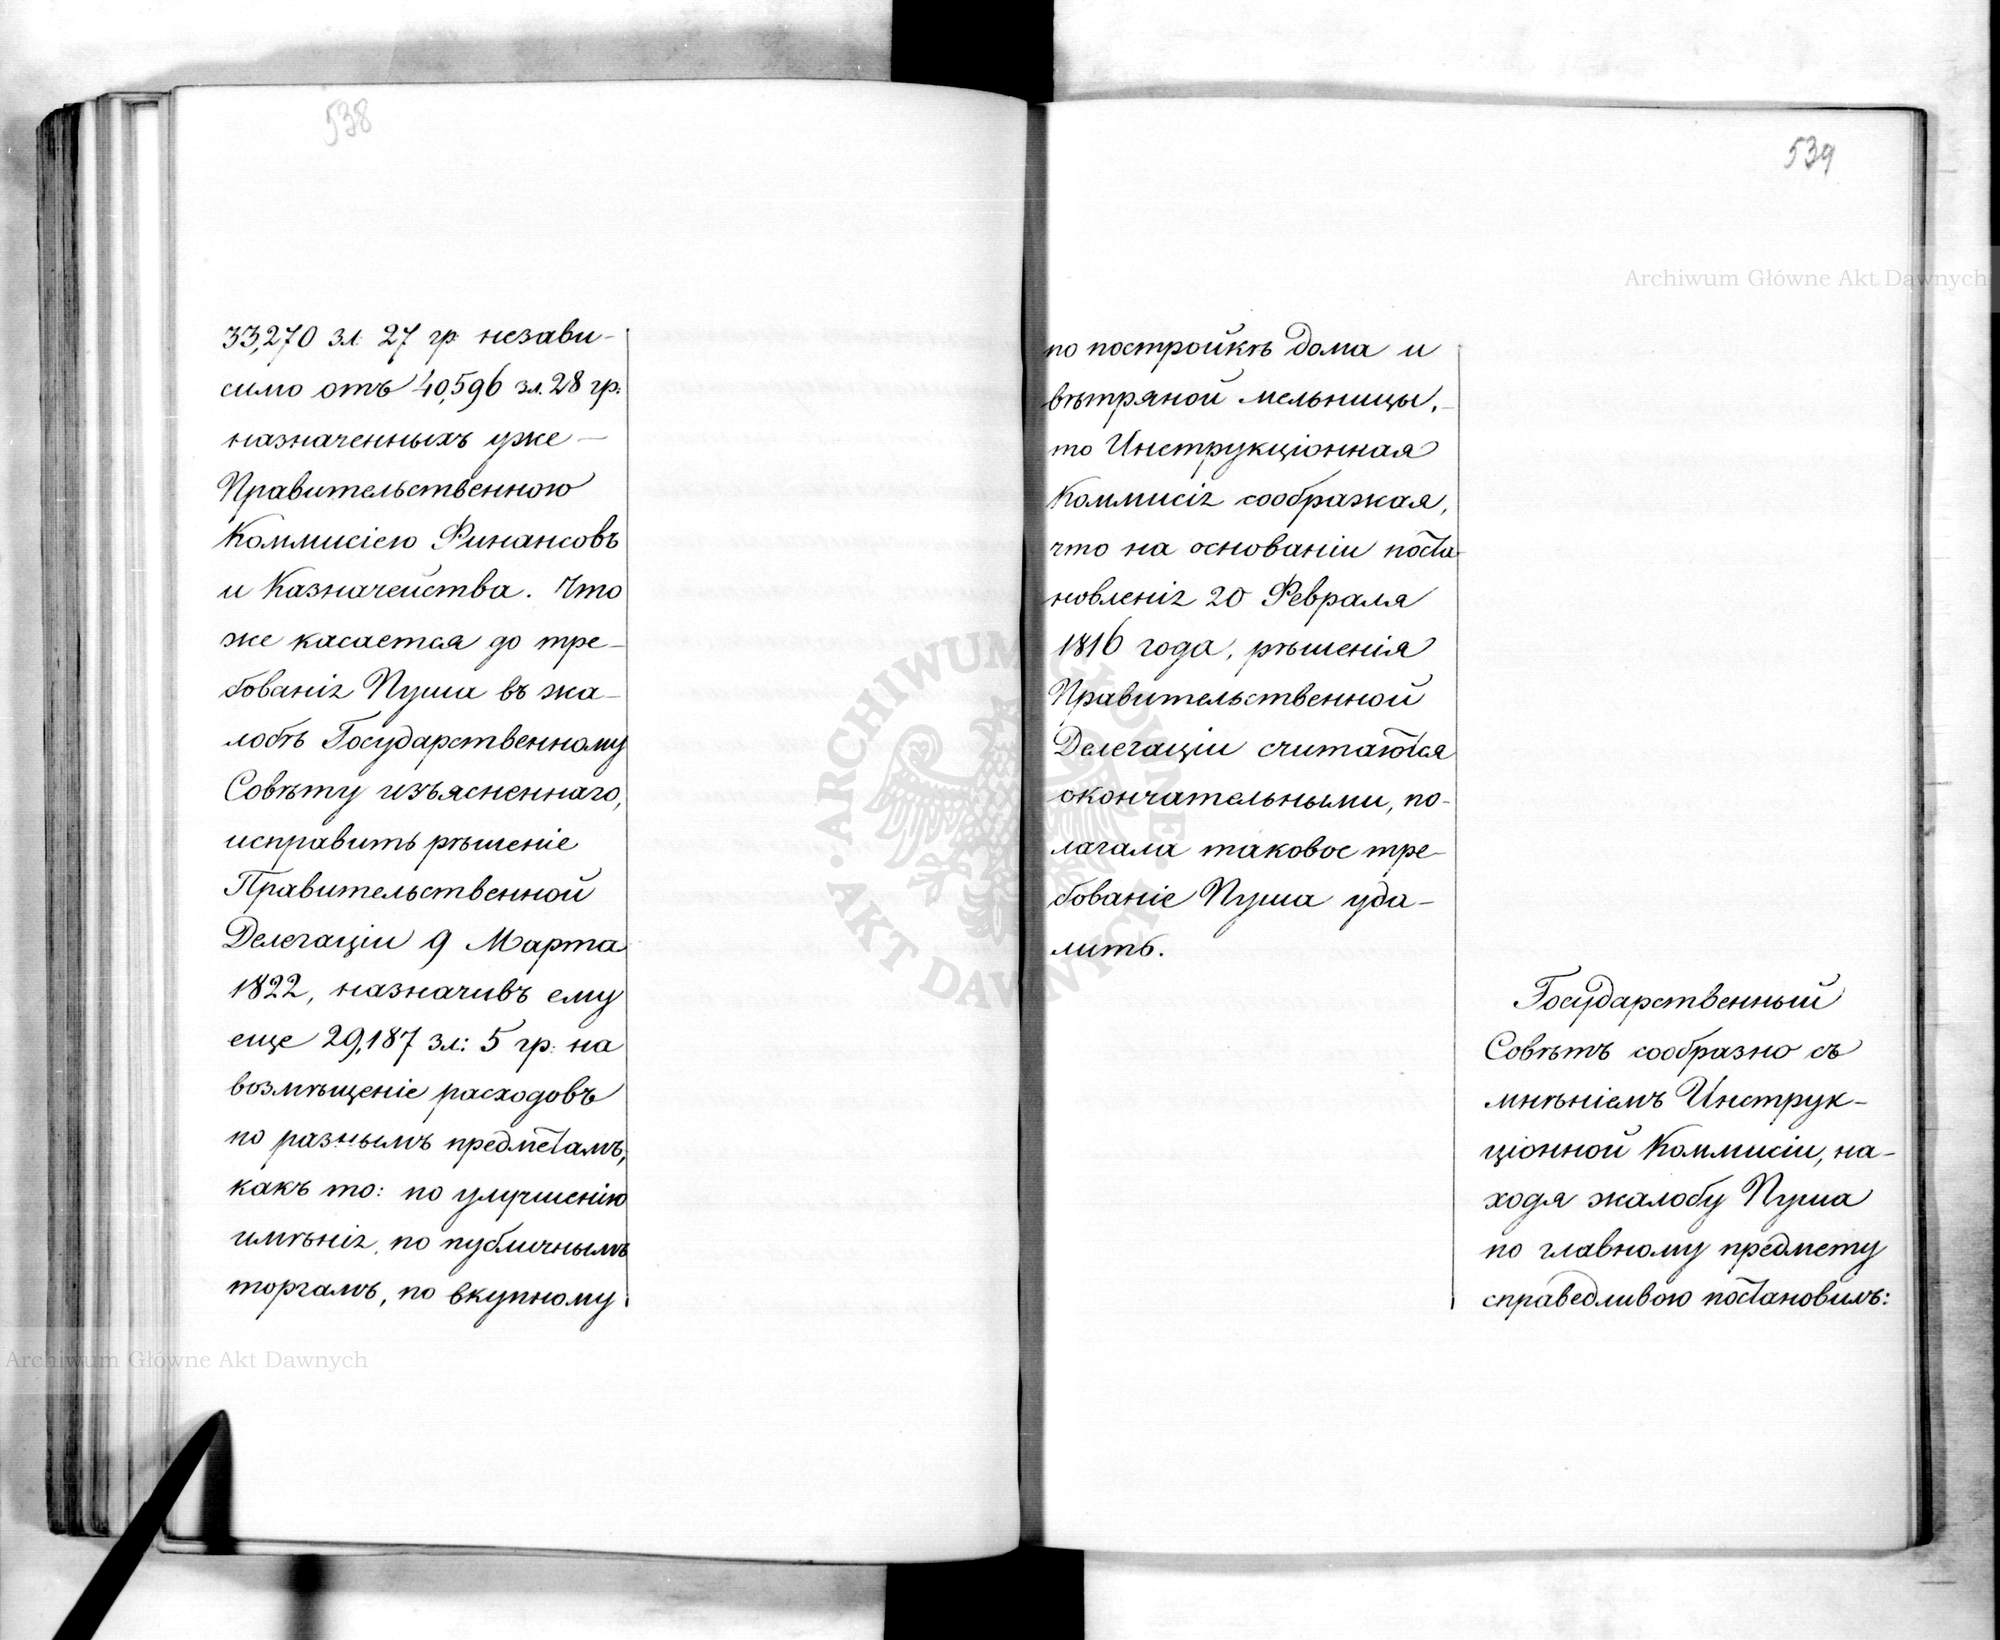 538
33,270 зл. 27 гр. незави-
симо отъ 40,596 зл. 28 гр.
назначенныхъ уже —
Правительственною
Коммисіею Финансовъ
и Казначейства. Что
же касается до тре-
бованія Пуша въ жа-
лобѣ Государственному
Совѣту изъясненнаго,
исправить рѣшеніе
Правительственной
Делегаціи 9 Марта
1822, назначивъ ему
еще 29,187 зл: 5 гр: на
возмѣщеніе расходовъ
по разнымъ предметамъ,
какъ то: по улучшенію
имѣнія, по публичнымъ
торгамъ, по вкупному
539
по постройкѣ дома и
вѣтряной мельницы, —
то Инструкціонная
Коммисія соображая,
что на основаніи поста-
новленія 20 Февраля
1816 года, рѣшенія
Правительственной
Делегаціи считаются
окончательными, по-
лагала таковое тре-
бованіе Пуша уда-
лить.
Государственный
Совѣтъ сообразно съ
мнѣніемъ Инструк-
ціонной Коммисіи, на-
ходя жалобу Пуша
по главному предмету
справедливою постановилъ:
Archiwum Główne Akt Dawnych
Archiwum Główne Akt Dawnych
ARCHIWUM GŁÓWNE AKT DAWNYCH